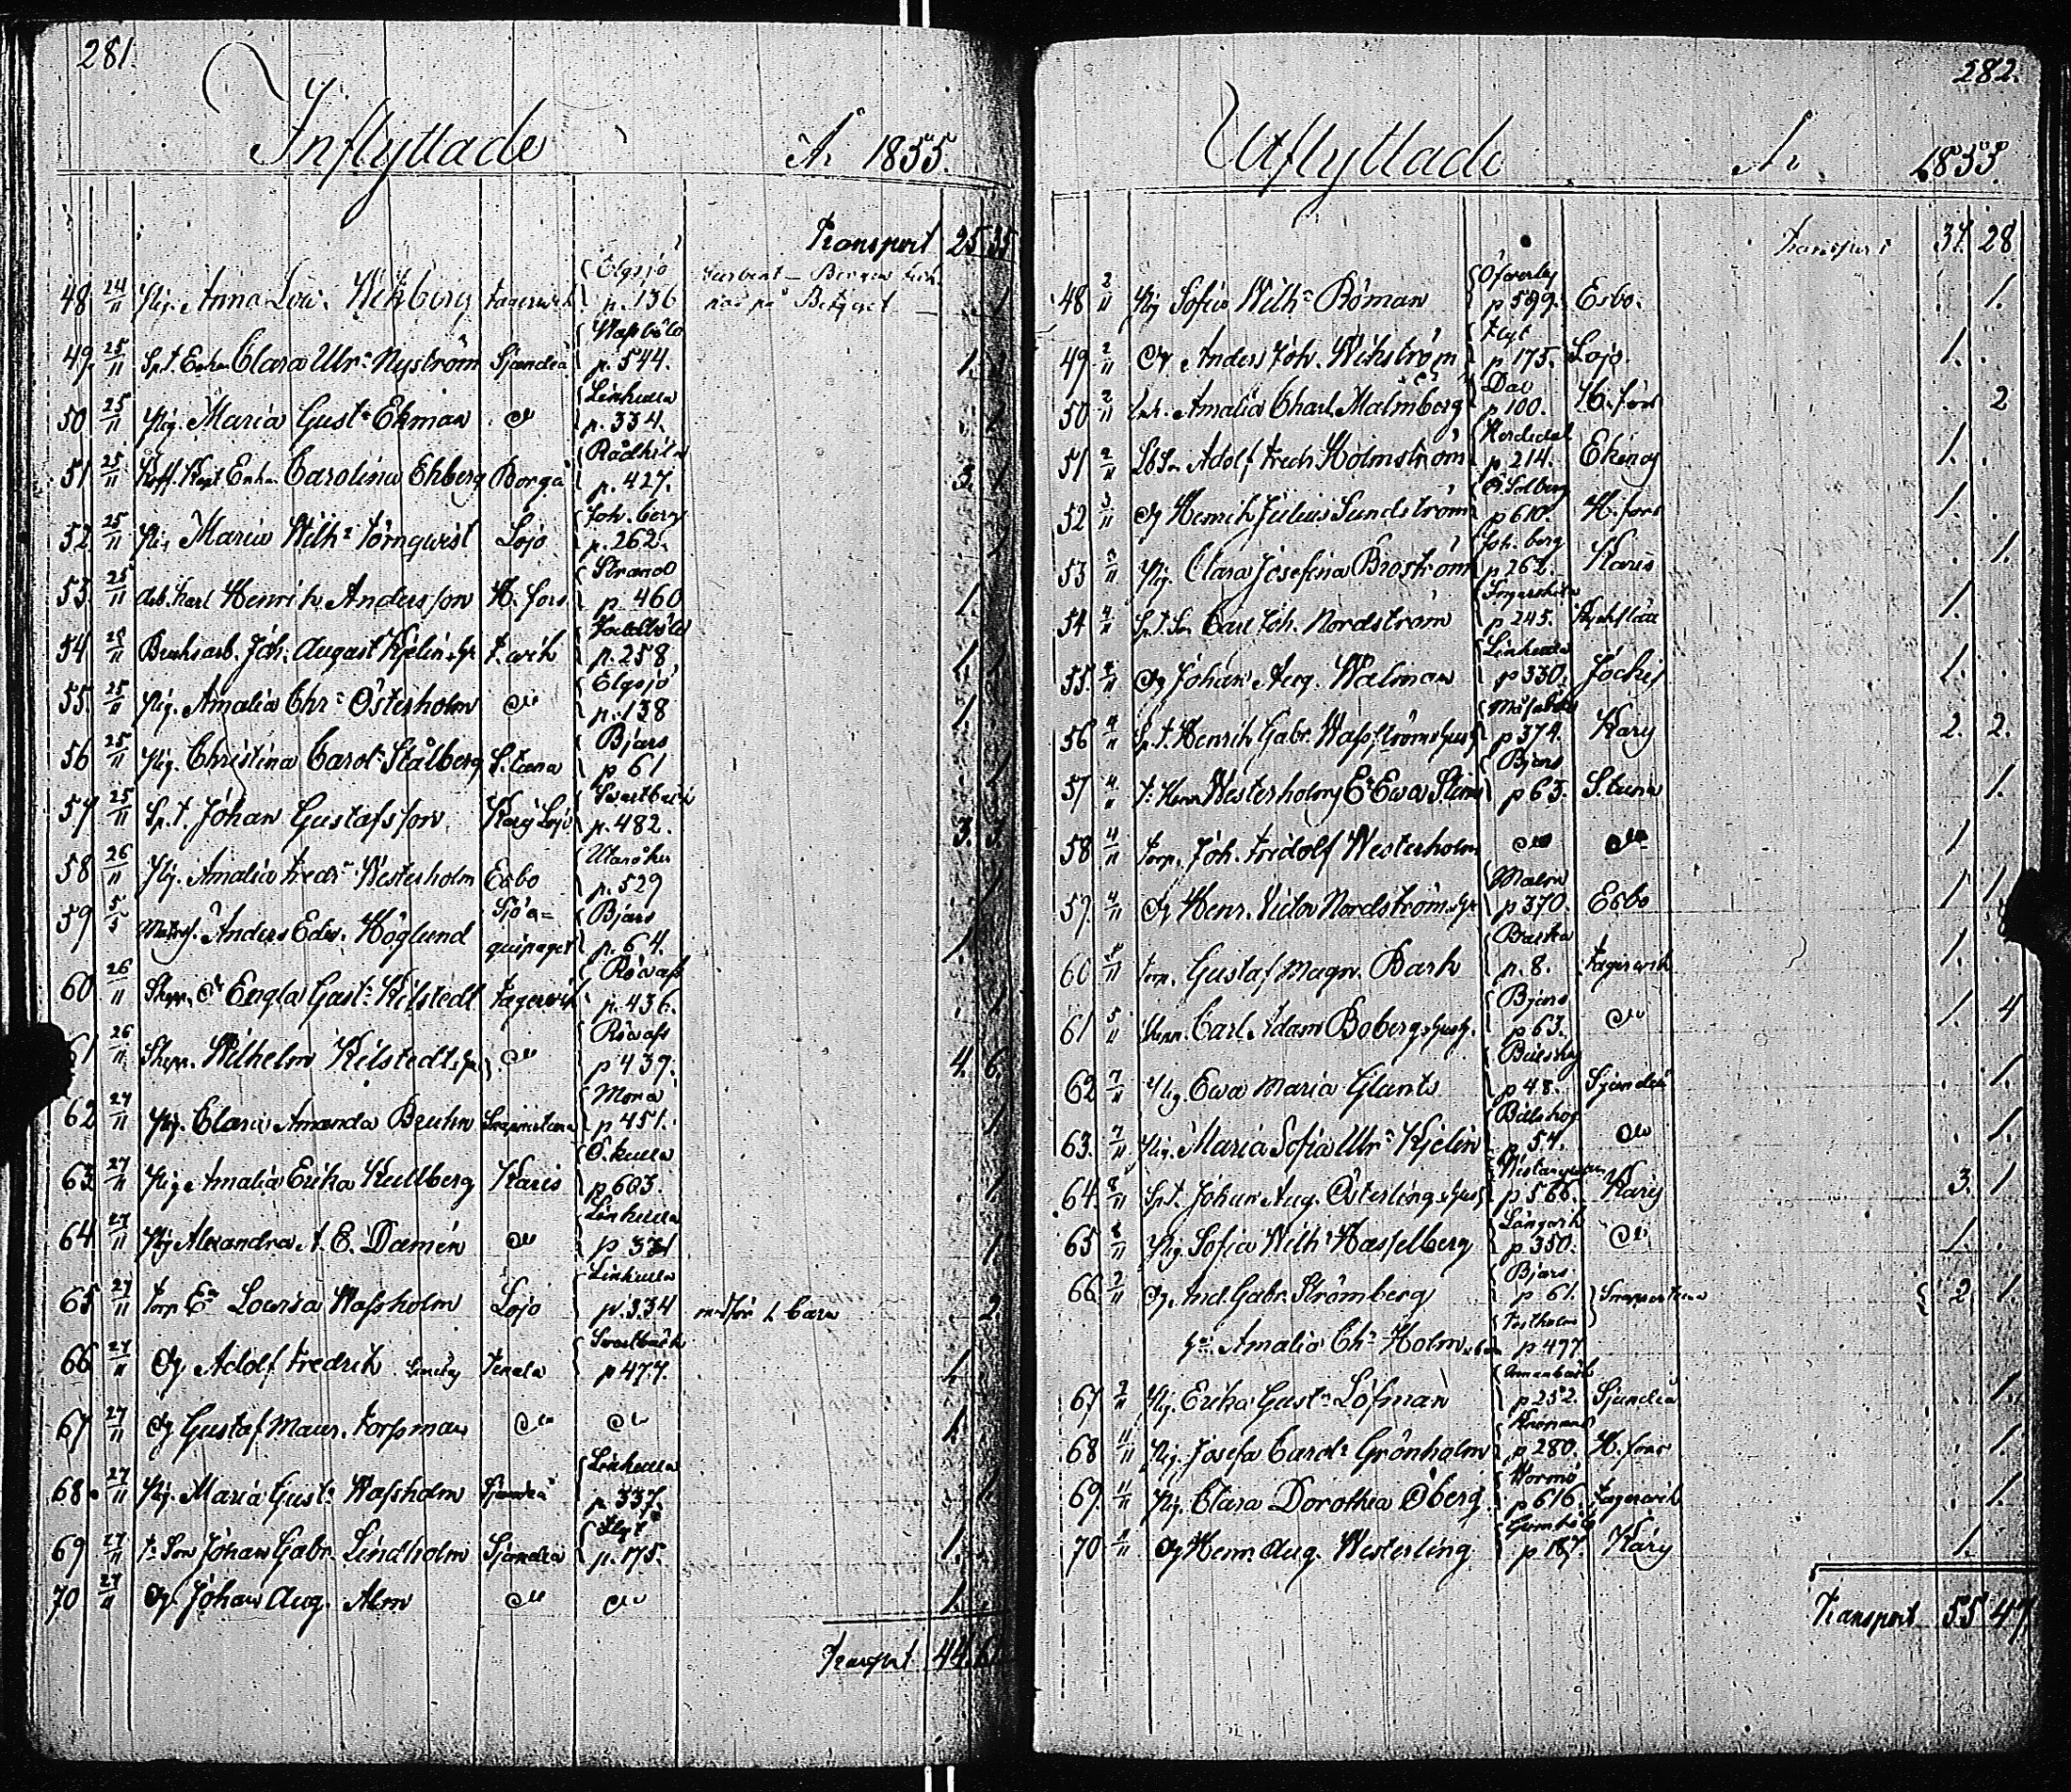 281.
Inflyttade År 1855.
Transport 25 35
48 24/11 Pig. Anna Lov. Wikberg Fagervik Elgsjö p. 136 1
49. 25/11 Sp.t. Enka Clara Ulr:a Nyström Sjundeå p. 544. 1. 1
50 25/11 Pig. Maria Gust:a Ekman do Linkulla p. 334. 1
51 25/11 Enka Carolina Ekberg Borgå Rådkila p. 427. 3. 1
52. 25/11 Pig Maria Wilh:a Törnqvist Lojo Joh. berg p. 262.
53. 25/11 Arb. karl Henrik Andersson H. fors Strand p. 460 1.
54 25/11 Bruksarb. Joh. August Kjelin F. wik p. 258 1. 1
55. 25/11 Pig. Amalia Chr:a Österholm do Elgsjö p. 138 1.
56 25/11 Pig. Christina Carol:a Stålberg S. tuna Bjars p 61 1
57 25/11 Sp.t. Johan Gustafsson Karis Lojo Svartbäck p. 482. 3. 3.
58 26/11 Pig. Amalia Fredr:a Westerholm Esbo p. 529 1
59 5/5 Matros. Anders Edv. Höglund Sjöe-
quipaget Bjars p. 64. 1.
60 26/11 Skepp. D:r Engla Gust:a Kilstedt Fagervik Röwass p. 436. 1
61 26/11 Skepp. Wilhelm Kilstedt do Röwass p 439. 4. 6.
62 27/11 Pig. Clara Amanda Bruhn Snappertuna p 451. 1
63 27/11 Pig Amalia Erika Kullberg Karis Ö. kulla p. 603. 1
64 27/11 Pig Alexandra A. E. Damén do Linkulla p 331 1
65 27/11 Torp. E:a Lovisa Wassholm Lojo Linkulla p. 334 medför 1 barn 2
66 27/11 Dg Adolf Fredrik Tenala Svartbäck p 477. 1.
67 27/11 Dg Gustaf Maur. Forssman do do 1.
68. 27/11 Pig. Maria Gust:a Wassholm Sjundeå Linkulla p. 337. 1.
69 27/11 T. Son Johan Gabr. Lindholm Sjundeå Flyt p. 175. 1.
70 27/11 Dg. Johan Aug. Alm do do 1.
Transport 44.
282.
Utflyttade År 1855.
Transport 37. 28
48 2/11 Pig Sofia Wilh:a Röman Öfverby p 599. Esbo. 1.
49 2/11 Dg Anders Joh. Wikström Flyt p 175. Lojo. 1.
50 2/11 Enk. Amalia Charl. Malmberg Dal p 100. H. fors 2
51 2/11 Adolf Fredr Holmström p. 214. Ekenäs 1.
52 3/11 Dg Henrik Julius Sundström Ö. Solberg p 610. H. fors 1.
53 3/11 Pig. Clara Josefina Broström Joh. berg p 262. Karis 1.
54 4/11 Sp.t. Son Carl Joh. Nordström p 245. Kyrkslätt 1.
55. 4/11 Dg Johan Aug. Walman Linkulla p 330. Jockis 1.
56 4/11 Sp.t. Henrik Gabr. Wasström p 374. Karis 2. 2.
57 4/11 Westerholms E:a Ewa Stina Bjars p 63. S. tuna 1.
58 4/11 Torp. Joh. Fridolf Westerholm do do 1
59 4/11 Dg Henr. Victor Nordström Malm p 370. Esbo 1 1.
60 5/11 Torp. Gustaf Magn. Bark Barka p. 8. Fagervik 1.
61 5/11 Skepp. Carl Adam Boberg Bjars p 63. do 1. 4
62 7/11 Pig. Ewa Maria Glants p 48. Sjundeå 1.
63. 7/11 Pig. Maria Sofia Ulr:a Kjelin p. 57. do 1.
64. 8/11 Sp.t. Johan Aug. Österling p 566. Karis 3. 1.
65 8/11 Pig. Sofia Wilh:a Hasselberg Långvik p 350. do 1.
66 9/11 Dg. And. Gabr. Strömberg Bjars p 61. Snappertuna 2. 1.
Amalia Ch:a Holm p 497
67 9/11 Pig. Erika Gust:a Löfman p 252. Sjundeå 1.
68 11/11 Pig. Josefa Carol:a Grönholm p 280. H. fors 1.
69. 11/11 Pig. Clara Dorothea Öberg Wormö p 616. Fagervik 1.
70 9/11 Dg Henr. Aug. Westerling p 187. Karis 1.
Transport 55 47